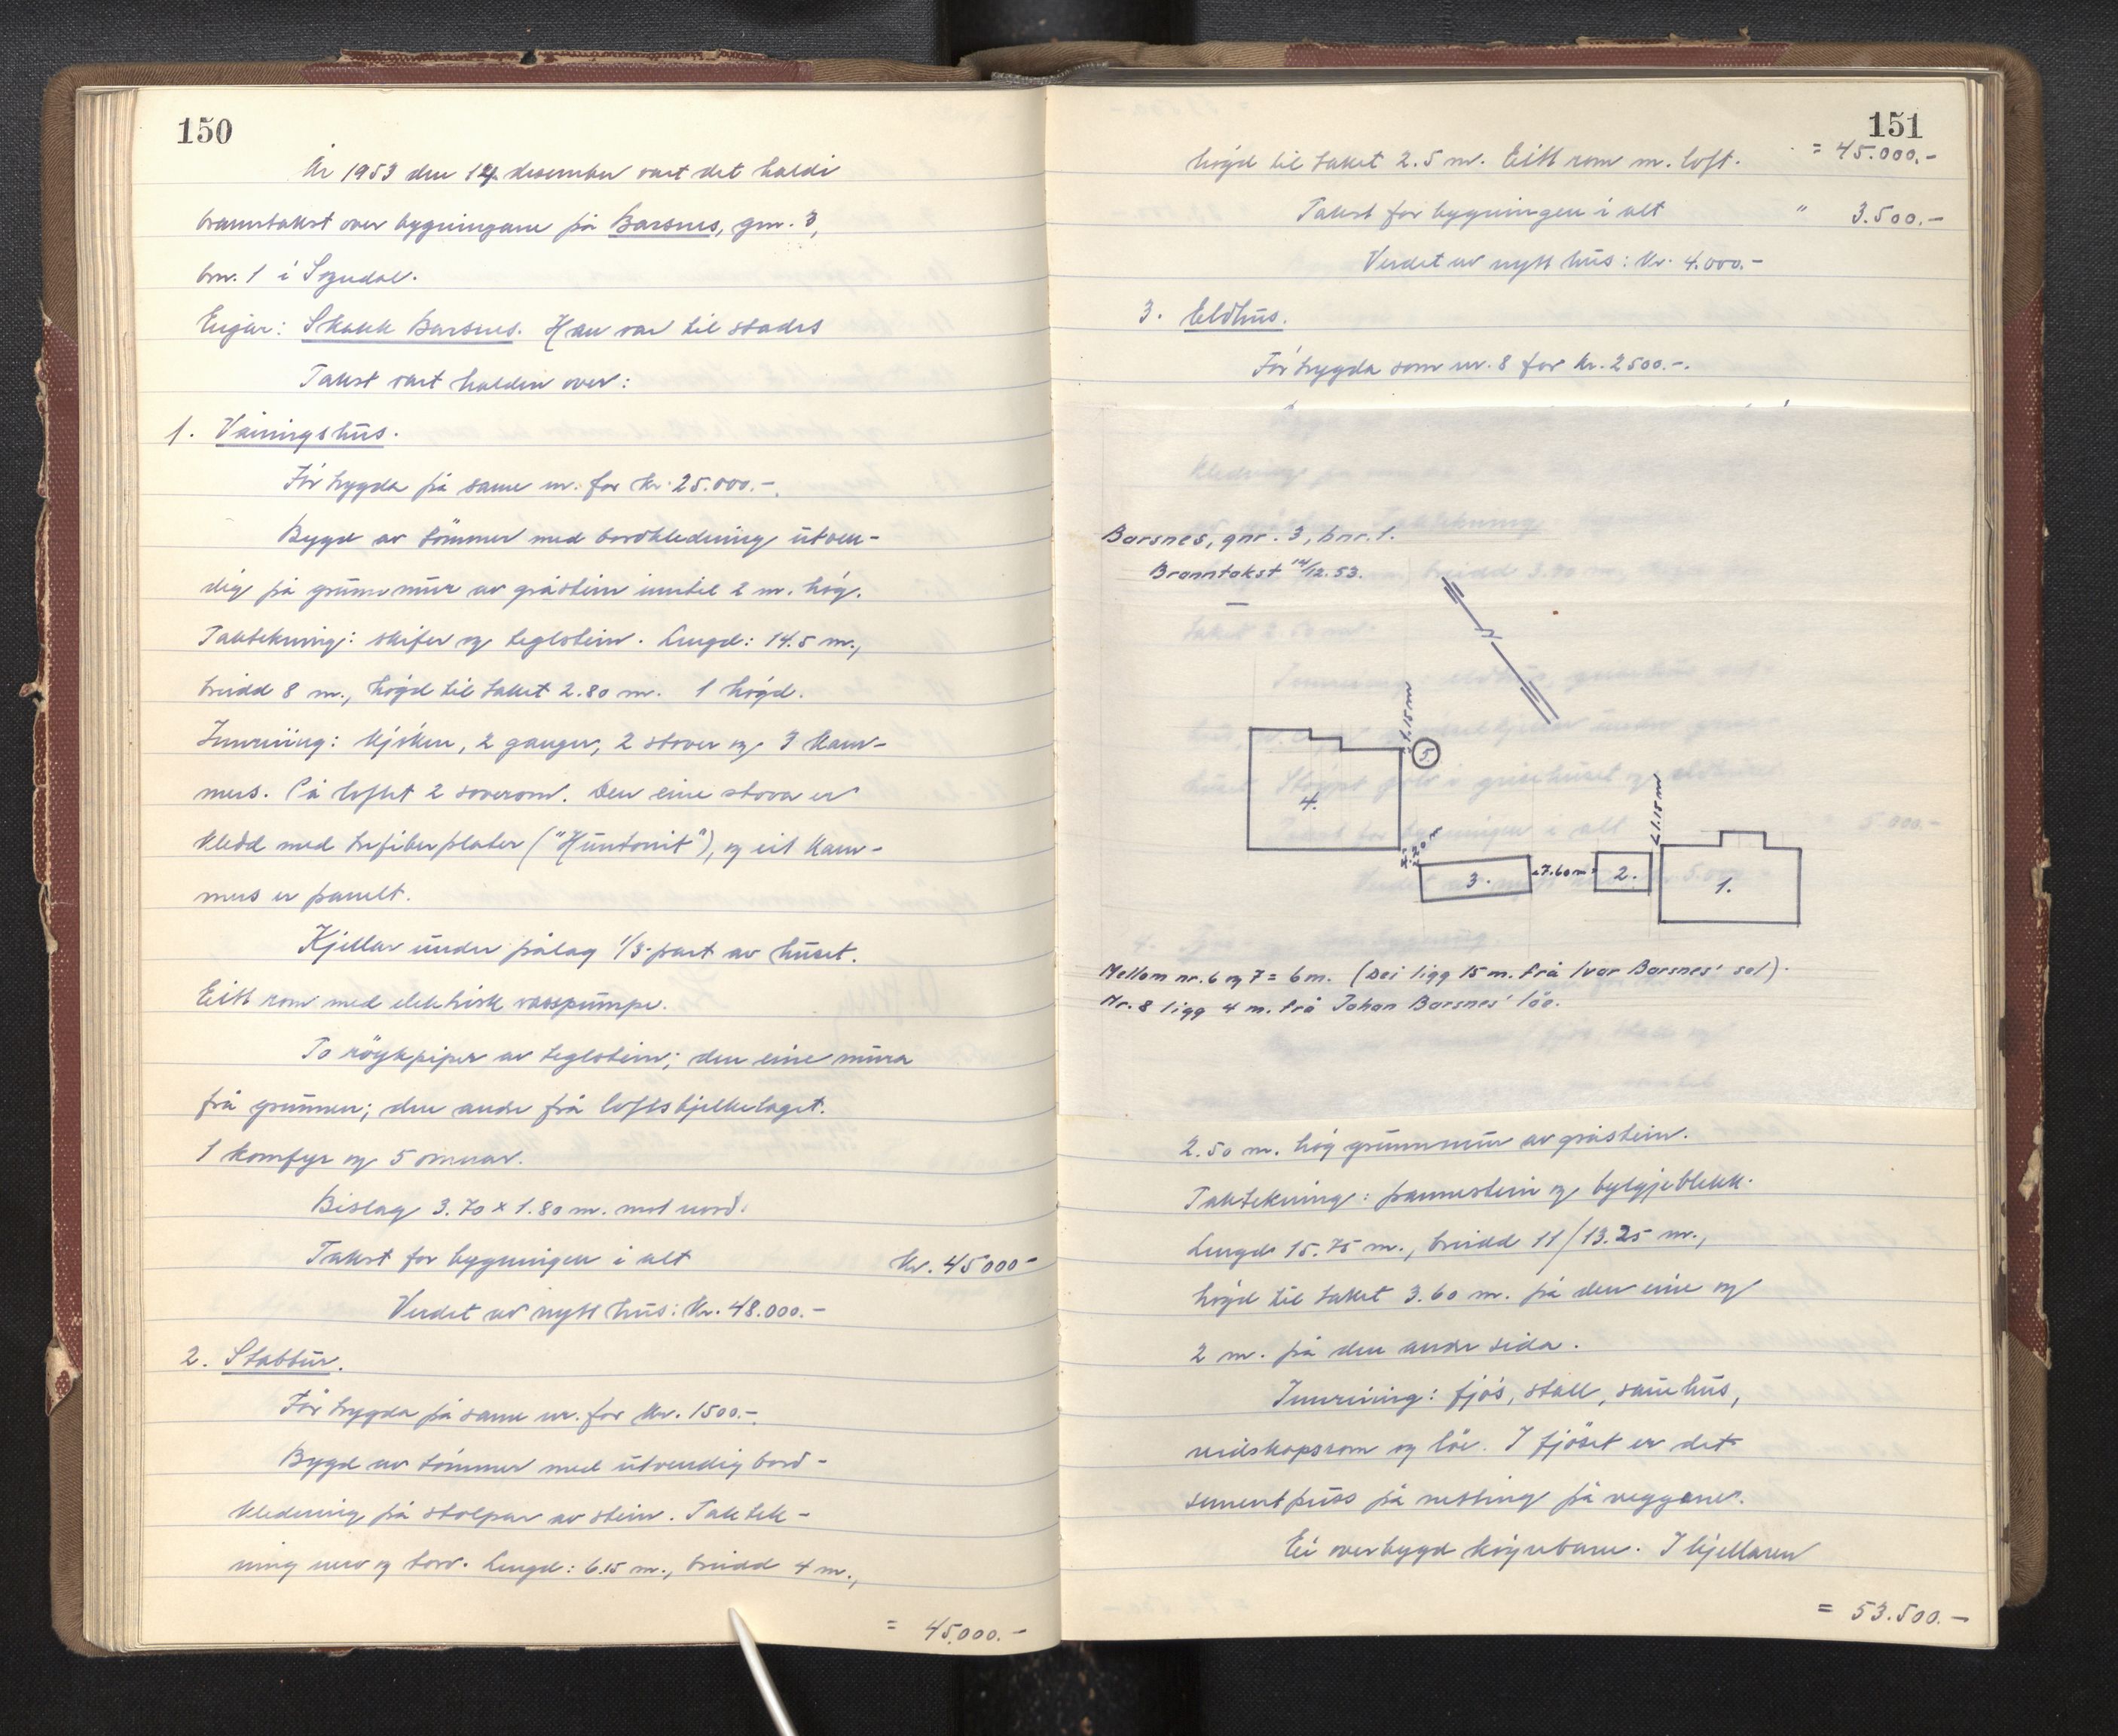 150
År 1953 den 14. desember vart det haldi
branntakst over bygningane på Barsnes, gnr. 3,
bnr. 1 i Sogndal.
Eigar: Skakk Barsnes. Han var til stades
Takst vart halden over:
1. Våningshus.
Før trygda på same nr. for kr. 25.000.-.
Bygd av tömmer med bordkledning utven-
dig på grunnmur av gråstein inntil 2 m. høg.
Taktekning: skifer og teglstein. Lengd: 14.5 m.,
breidd 8 m., høgd til taket 2.80 m. 1 høgd.
Innreiing: kjøken, 2 ganger, 2 stover og 3 kam-
mers. På loftet 2 soverom. Den eine stova er
kledd med trefiberplater ("Huntonit"), og eit kam-
mers er panelt.
Kjellar under pålag 1/3-part av huset.
Eitt rom med elektrisk vasspumpe.
To röykpiper av teglstein; den eine mura
frå grunnen; den andre frå loftsbjelkelaget.
1 komfyr og 5 omnar.
Bislag 3.70 x 1.80 m. mot nord.
Takst for bygningen i alt kr. 45000-
Verdet av nytt hus: kr. 48.000.-
2. Stabbur.
Før trygda på same nr. for kr. 1500.-.
Bygd av tömmer med utvendig bord-
kledning på stolpar av stein. Taktek-
ning never og torv. Lengd: 6.15 m., breidd 4 m.,
= 45.000.-
151
høgd til taket 2.5 m. Eitt rom m. loft. = 45.000.-
Takst for bygningen i alt " 3.500.-
Verdet av nytt hus: kr. 4.000.-
3. Eldhus.
Før trygda som nr. 8 for kr. 2500.-.
Barsnes, gnr. 3, bnr. 1.
Branntakst 14/12.53.
N
1.15 m
5
4.
4.20 m
3.
7.60 m
2.
1.15 m
1.
Mellom nr. 6 og 7 = 6 m. (Dei ligg 15 m. frå Ivar Barsnes' sel).
Nr. 8 ligg 4 m. frå Johan Barsnes' löe.
2.50 m. høg grunnmur av gråstein.
Taktekning: pannestein og bylgjeblekk.
Lengd 15.75 m., breidd 11/13.25 m.,
høgd til taket 3.60 m. på den eine og
2 m. på den andre sida.
Innreiing: fjøs, stall, sauehus,
reidskapsrom og löe. I fjöset er det
sementpuss på netting på veggane.
Ei overbygd köyrebru. I kjellaren
= 53.500.-